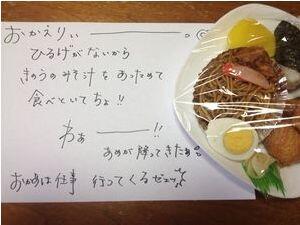 おかえりぃ
ひるげがないから
きのうのみそ汁をあっためて
食べといてちょ!!
わぁ━━!!
あめが降ってきたぁ
おかあは仕事 行ってくるゼェッ